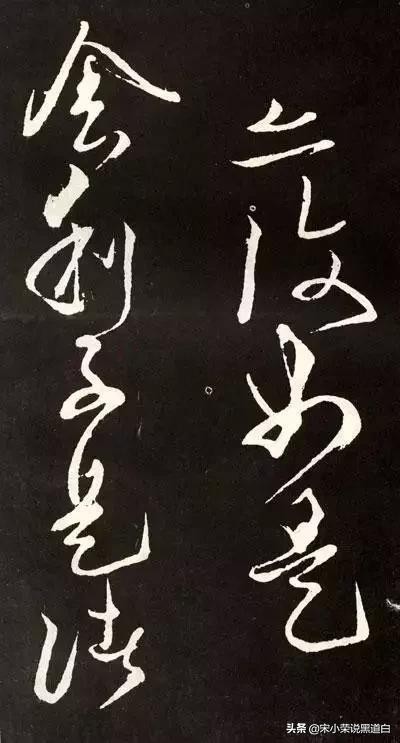 亦復如是
舍利子是诸
头条 @宋小荣说黑道白